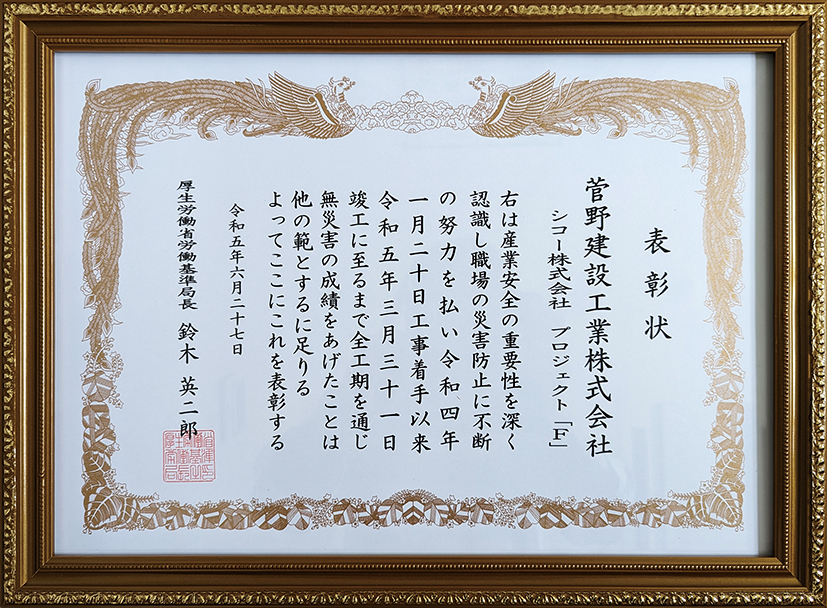 表彰状
菅野建設工業株式会社
シコー株式会社 プロジェクト「F」
右は産業安全の重要性を深く
認識し職場の災害防止に不断
の努力を払い令和四年
一月二十日工事着手以来
令和五年三月三十一日
竣工に至るまで全工期を通じ
無災害の成績をあげたことは
他の範とするに足りる
よってここにこれを表彰する
令和五年六月二十七日
厚生労働省労働基準局長 鈴木英二郎